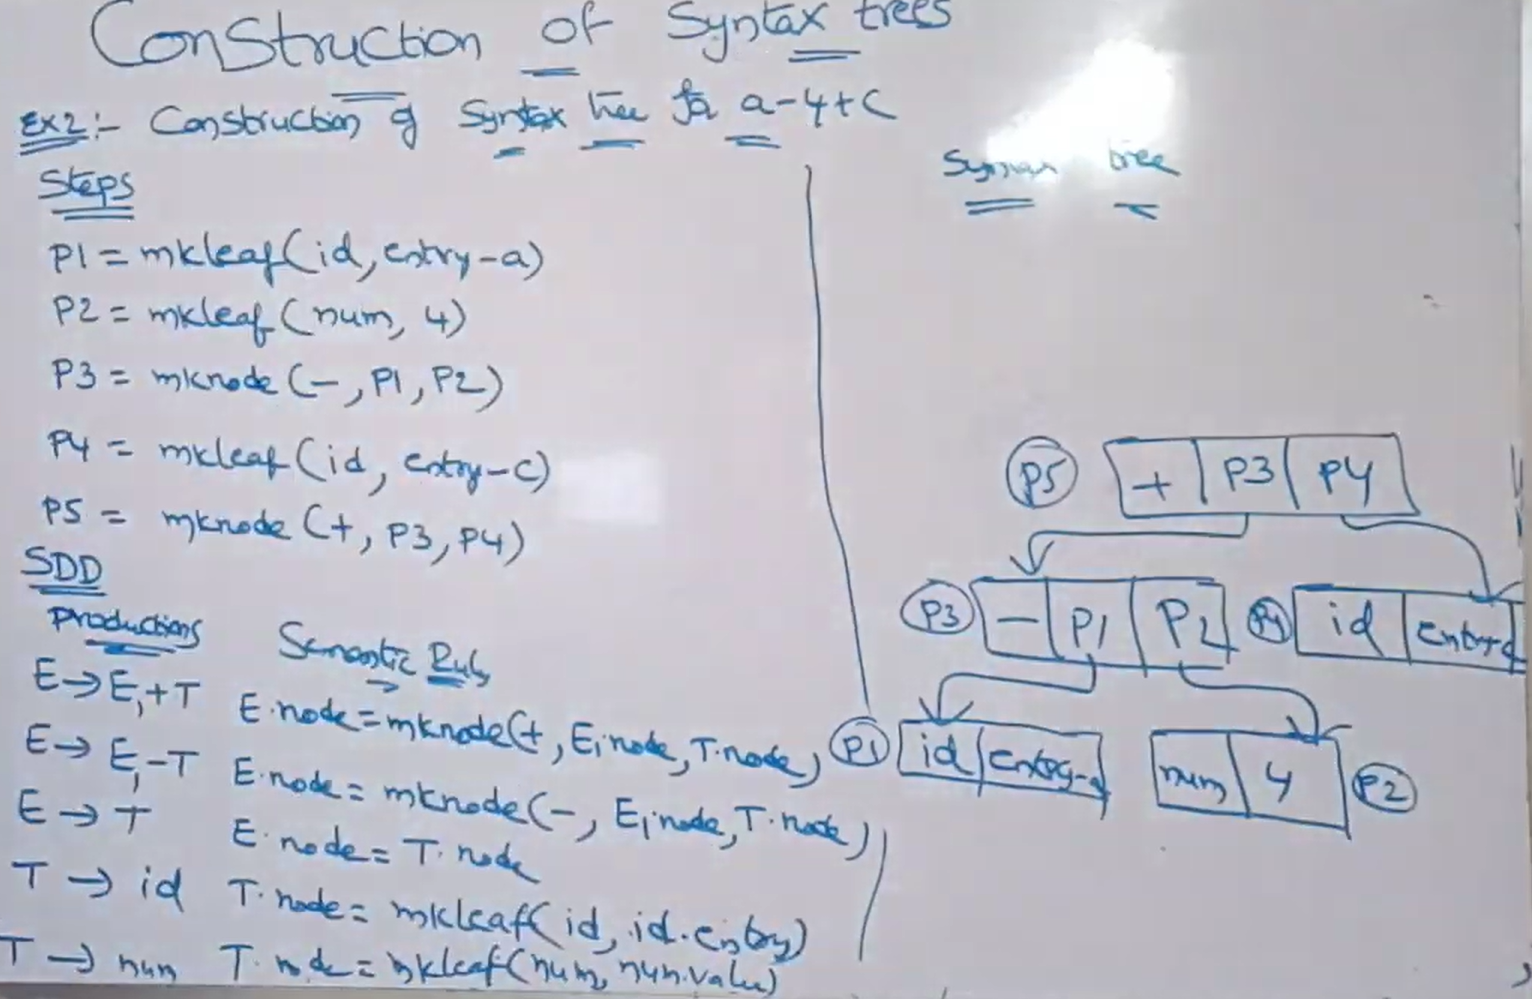 Construction of Syntax trees
Ex2:- Construction of Syntax tree for a-4+c
Steps
P1 = mkleaf(id, entry-a)
P2 = mkleaf(num, 4)
P3 = mknode(-, P1, P2)
P4 = mkleaf(id, entry-c)
P5 = mknode(+, P3, P4)
SDD
Productions Semantic Rules
E→E1+T E.node=mknode(+, E1.node, T.node)
E→E1-T E.node=mknode(-, E1.node, T.node)
E→T E.node=T.node
T→id T.node=mkleaf(id, id.entry)
T→num T.node=mkleaf(num, num.value)
Syntax tree
P5 + P3 P4
P3 - P1 P2 P4 id entry-c
P1 id entry-a num 4 P2